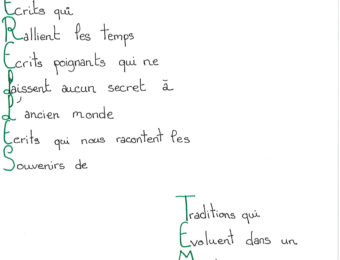 Ecrits qui
Rallient les temps
Ecrits poignants qui ne
Laissent aucun secret à
L'ancien monde
Ecrits qui nous racontent les
Souvenirs de
Traditions qui
Evoluent dans un
M